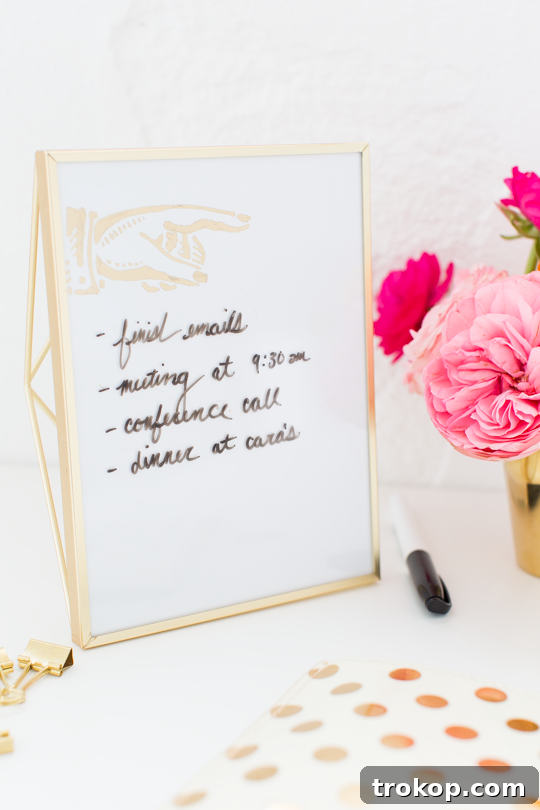 - finish emails
- meeting at 9:30 am
- conference call
- dinner at cara's
trokop.com